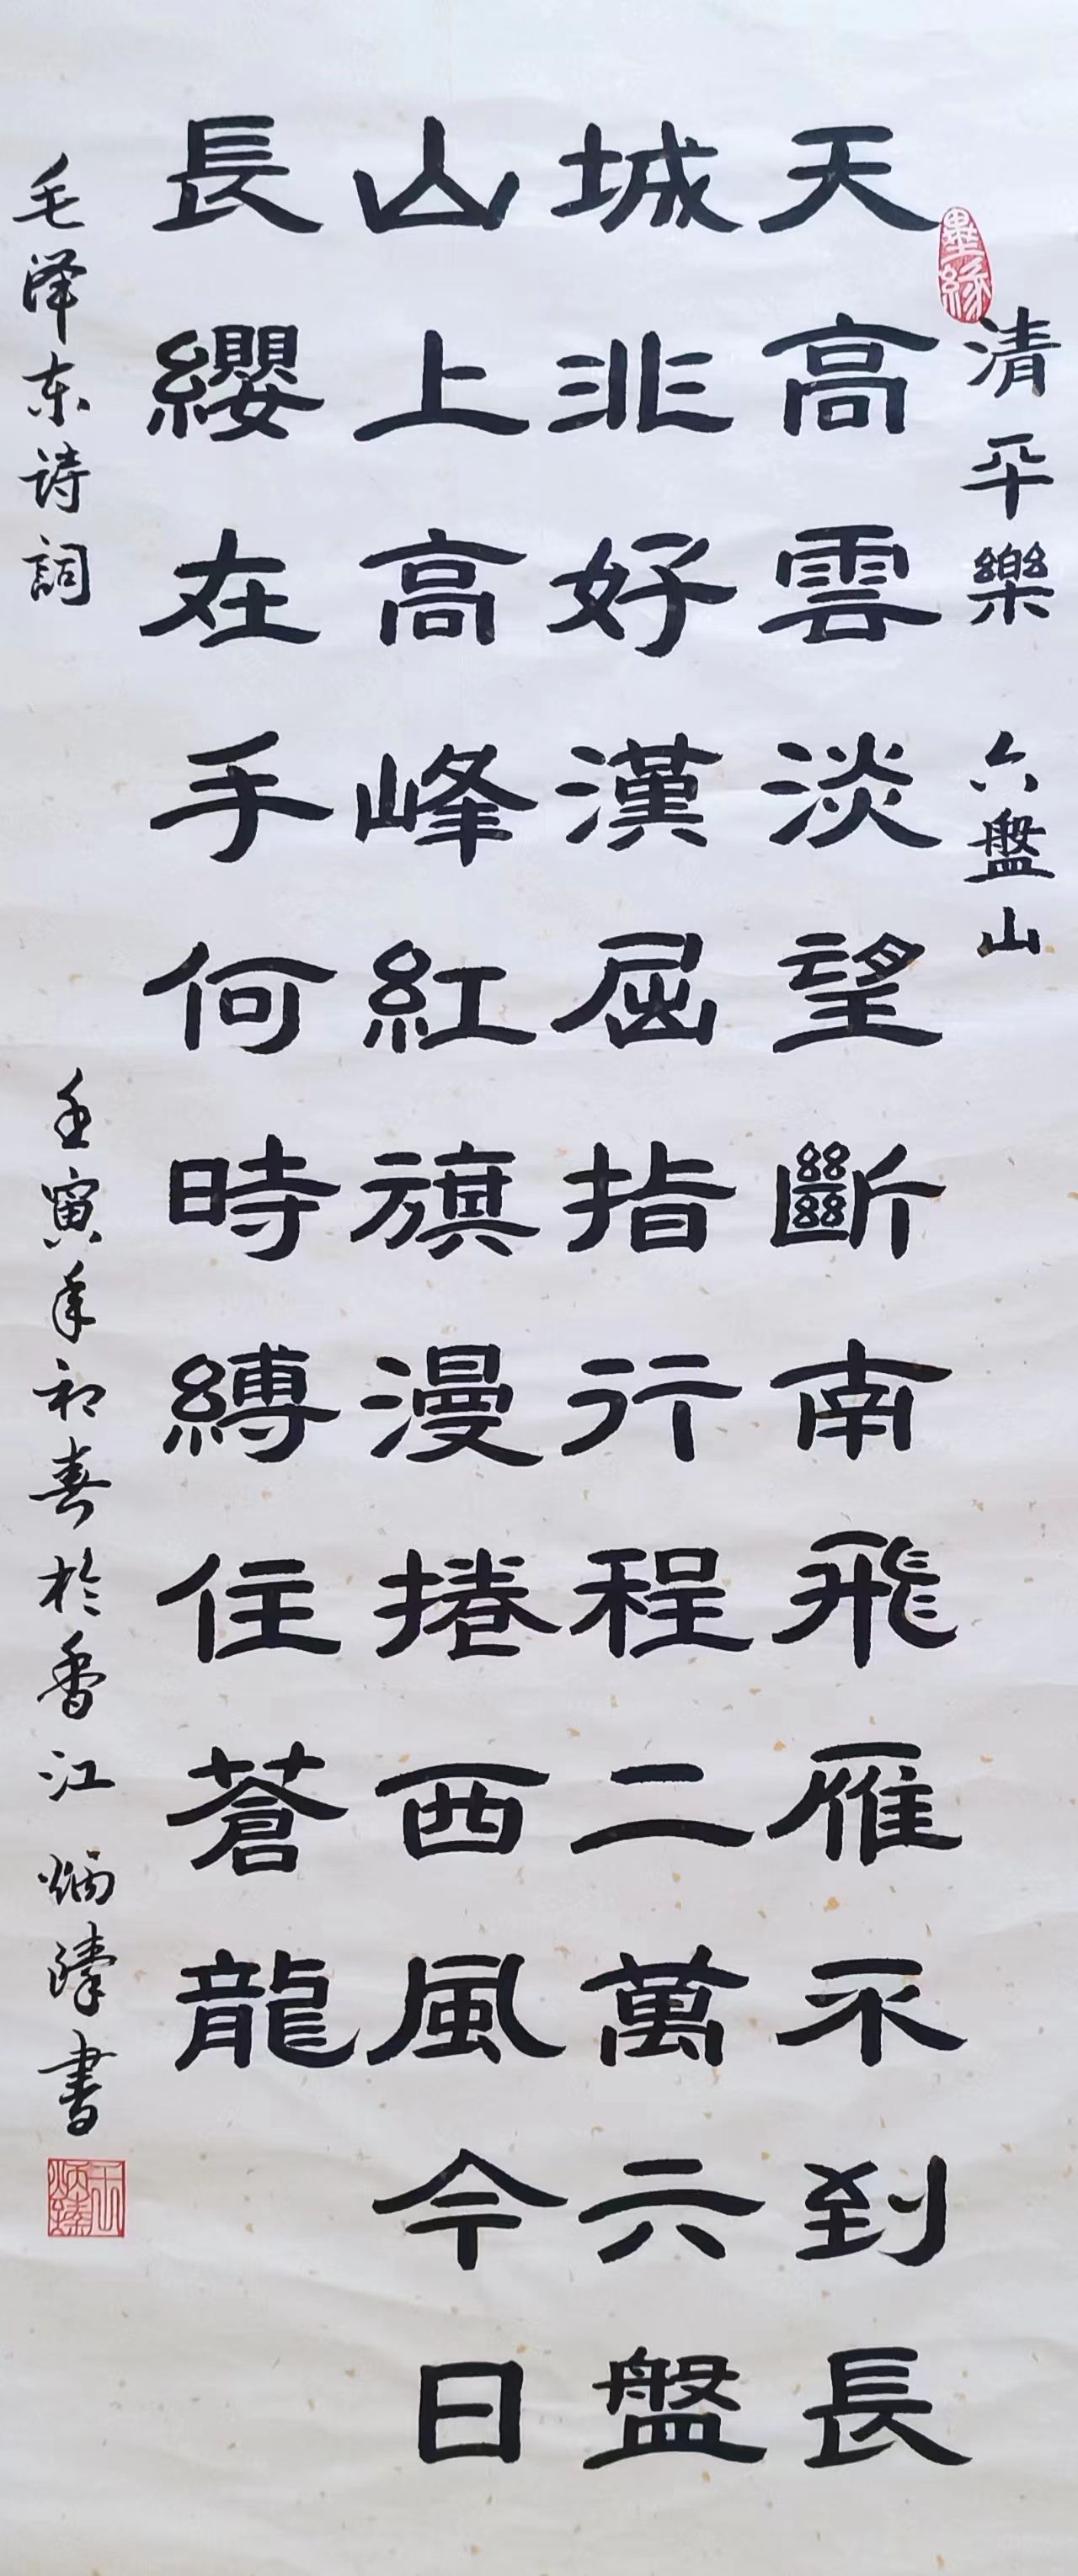 墨緣
清平樂 六盤山
天高雲淡望斷南飛雁不到長
城非好漢屈指行程二萬六盤
山上高峰紅旗漫捲西風今日
長纓在手何時縛住蒼龍
毛泽东诗詞
壬寅年初春於香江 炳臻書